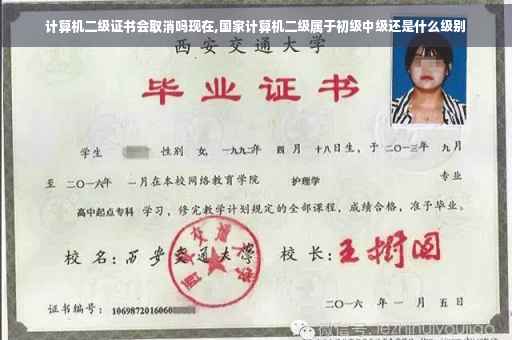 计算机二级证书会取消吗现在,国家计算机二级属于初级中级还是什么级别
西安交通大学
毕业证书
学生 性别 女, 一九九二年 四月 十八日生, 于二〇一三年 九月
至 二〇一六年 一月在本校网络教育学院 护理学 专业
高中起点专科 学习, 修完教学计划规定的全部课程, 成绩合格, 准予毕业。
校名: 西安交通大学 校长: 王树国
西安交通大学
证书编号: 1069872016060
二〇一六年 一月 五日
微信号: jezhinuiyoujiao